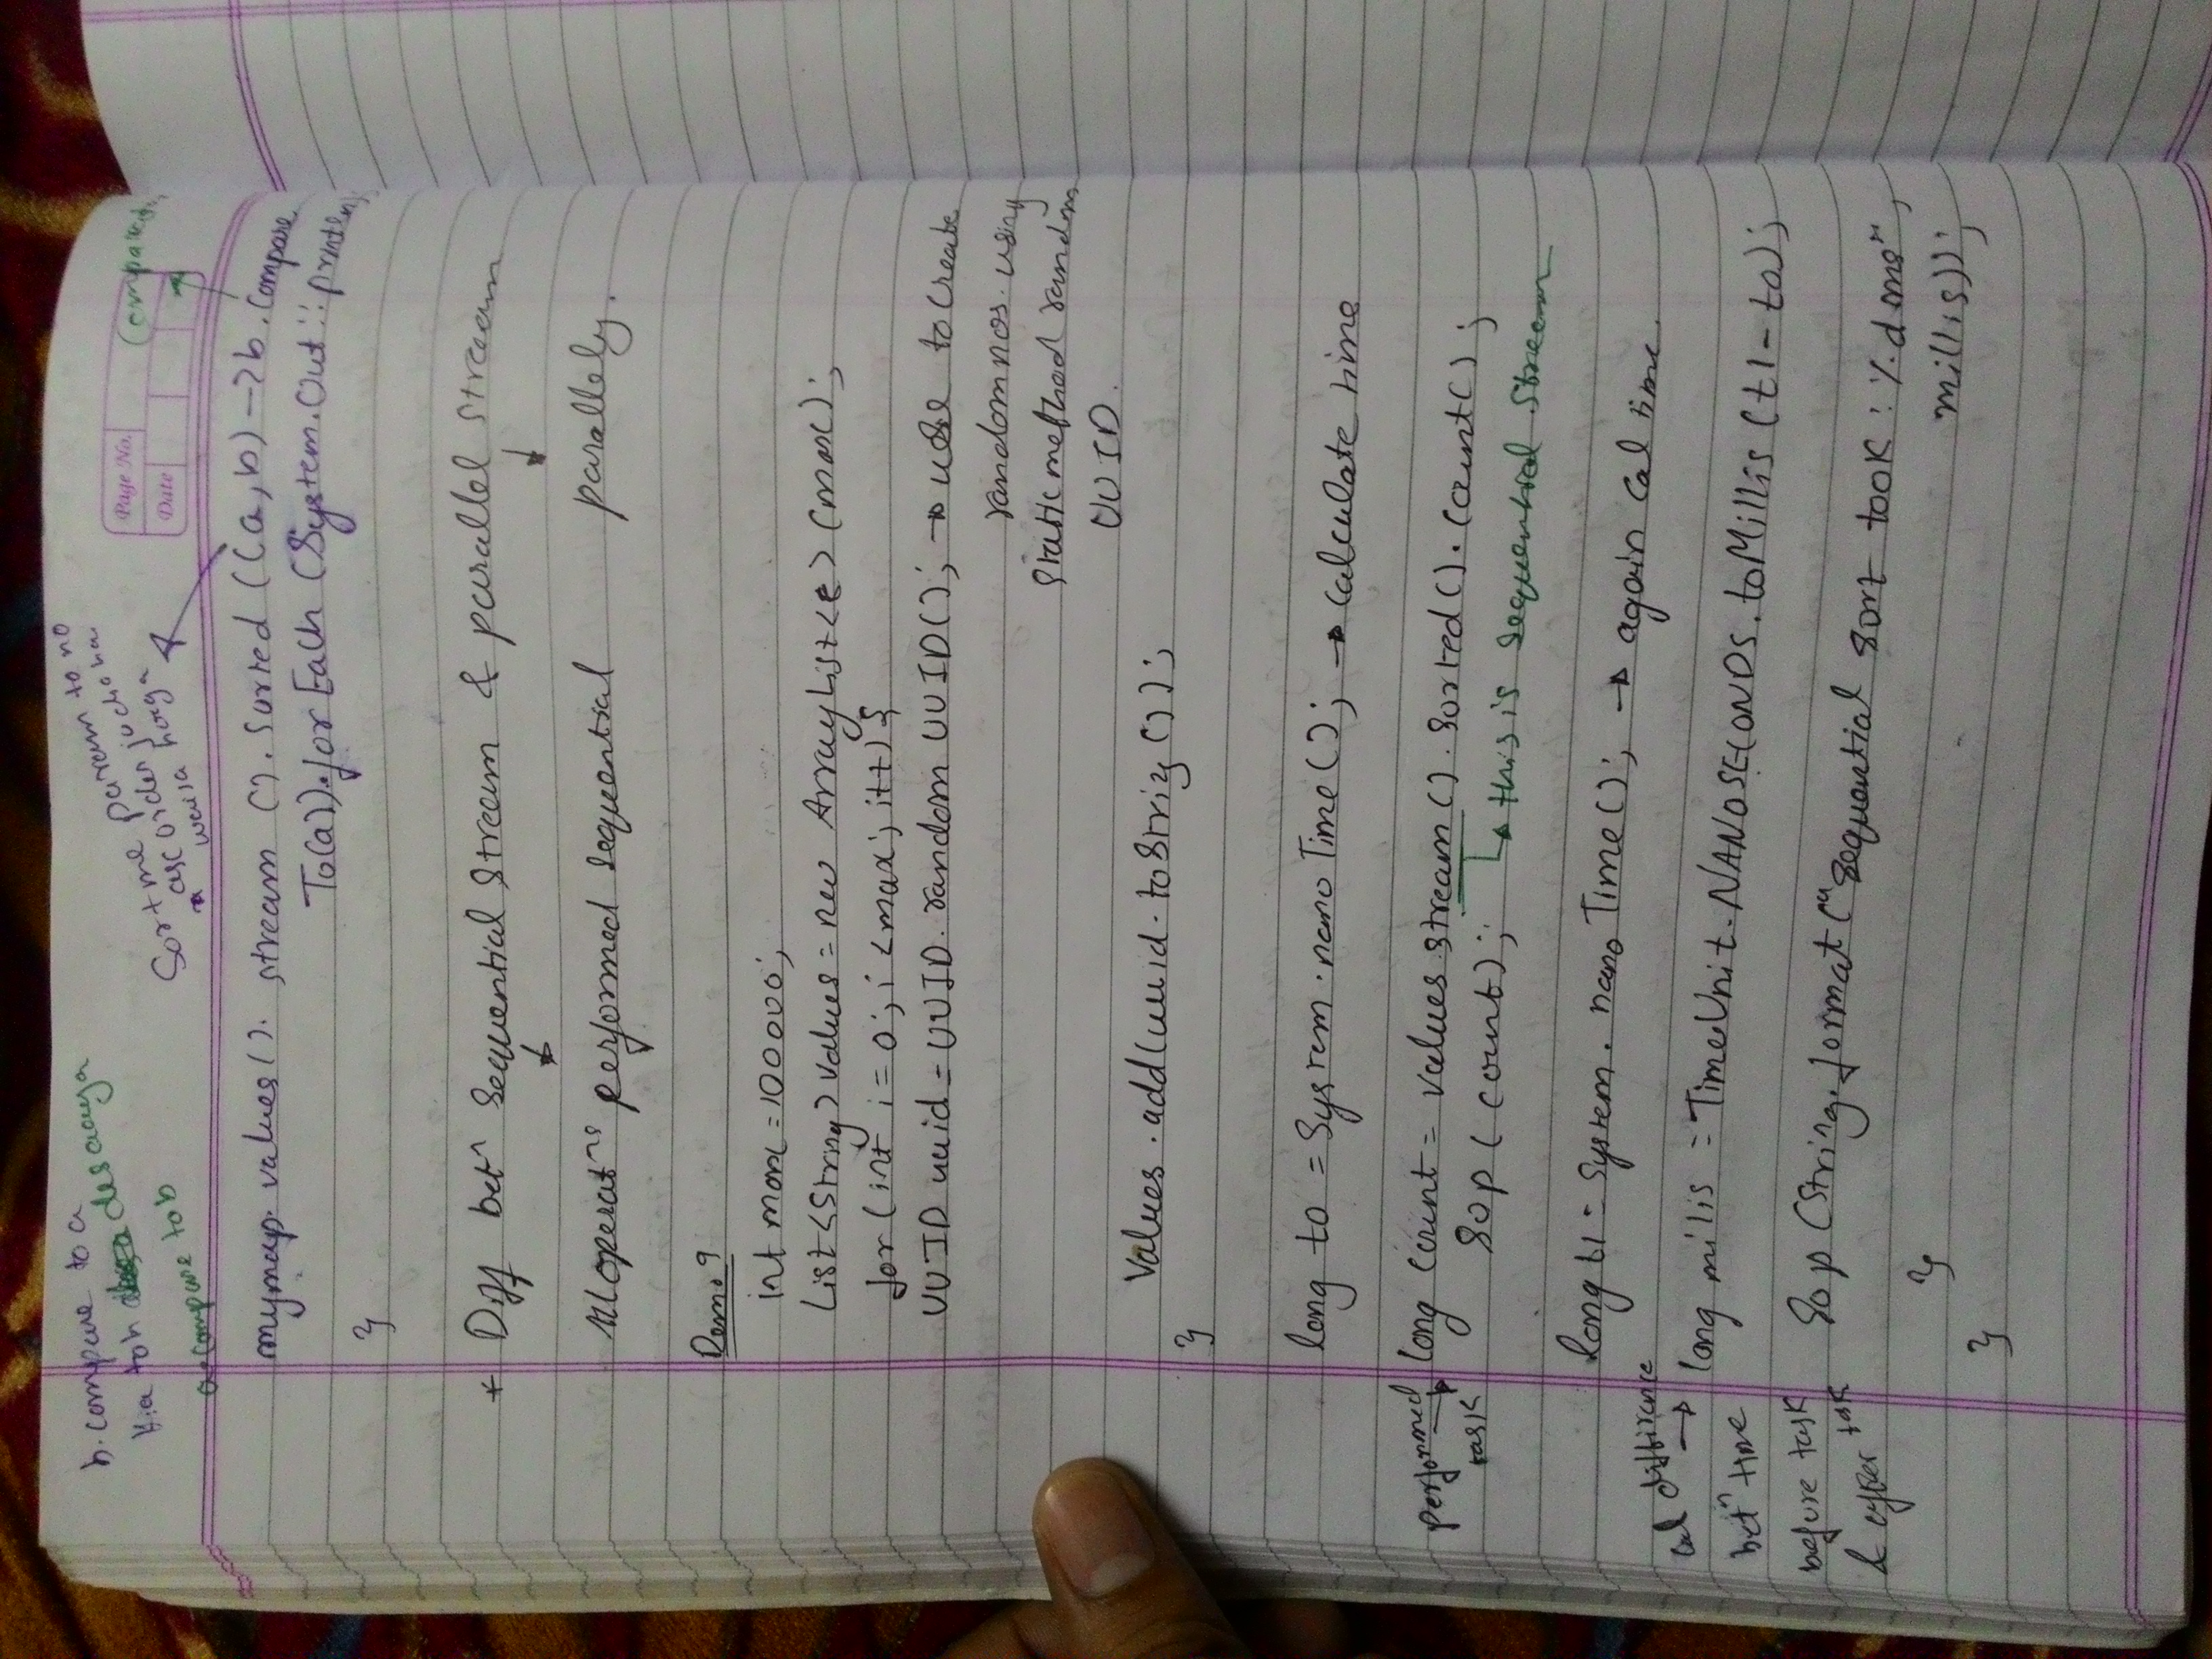 b. compare to a
kia toh desc aaya
a. compare to b
Sort me param to no
asc order ju chaha
waisa hoega
Page No.
Date
mymap. values(). stream (). Sorted ((a,b) -> b. Compare
To(a)).for Each (System.Out :: println);
}
* Diff betn Sequential Stream & parallel Stream
All operatns performed sequential parallely.
Demo 9
int max = 100000;
List<String> values = new ArrayList<E> (max);
for (int i = 0; i < max; i++) {
UUID uuid = UUID. random UUID(); → use to create
random nos. using
static method random
UUID.
Values . add(uuid. toString());
}
long to = System . nano Time(); → calculate time
performed task
long count = values.stream(). Sorted(). Count();
Sop ( count); ↳ this is sequential Stream
long t1 = System . nano Time(); → again cal time.
cal diffirence →
long milis = TimeUnit. NANOSECONDS. toMillis (t1 - to);
betn time
before task
& after task
Sop (String. format ("sequential sort took : %d ms",
millis));
}
}